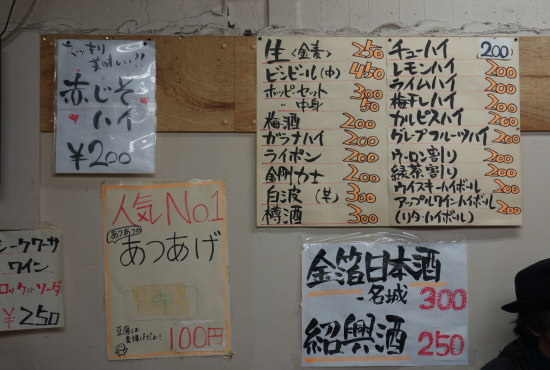 赤じそ
ハイ
¥200
生(金麦) 250
ビンビール(中) 450
ホッピーセット 300
〃 中身 50
梅酒 200
ガラナハイ 200
ライポン 200
金剛力士 200
白波(芋) 300
樽酒 300
チューハイ 200
レモンハイ 200
ライムハイ 200
梅干しハイ 200
カルピスハイ 200
グレープフルーツハイ 200
ウーロン割り 200
緑茶割り 200
ウイスキーハイボール 200
アップルワインハイボール 200
(リタ・ハイボール) 300
人気No.1
あつあつ
あつあげ
100円
シークワーサー
ワイン
ロックorソーダ
¥250
金箔日本酒
-名城 300
紹興酒 250